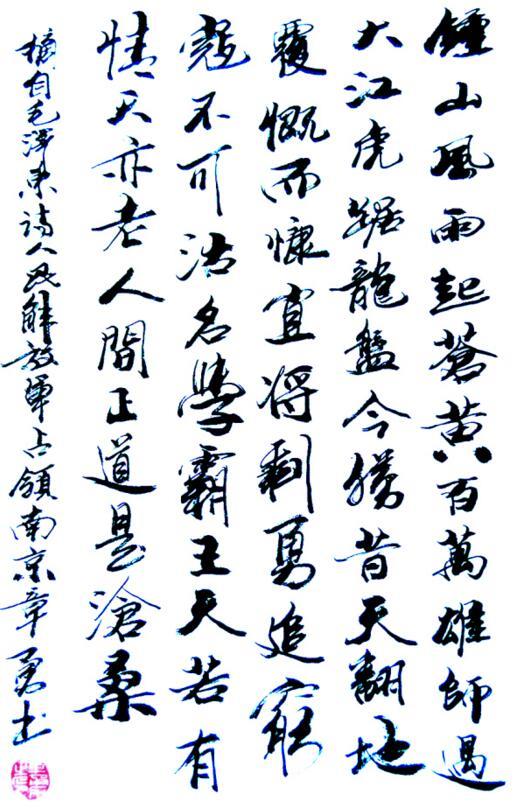 鍾山風雨起蒼黄百萬雄師過
大江虎踞龍盤今勝昔天翻地
覆慨而慷宜将剩勇追窮
寇不可沽名學霸王天若有
情天亦老人間正道是滄桑
摘自毛澤東詩人民解放軍占領南京章勇书